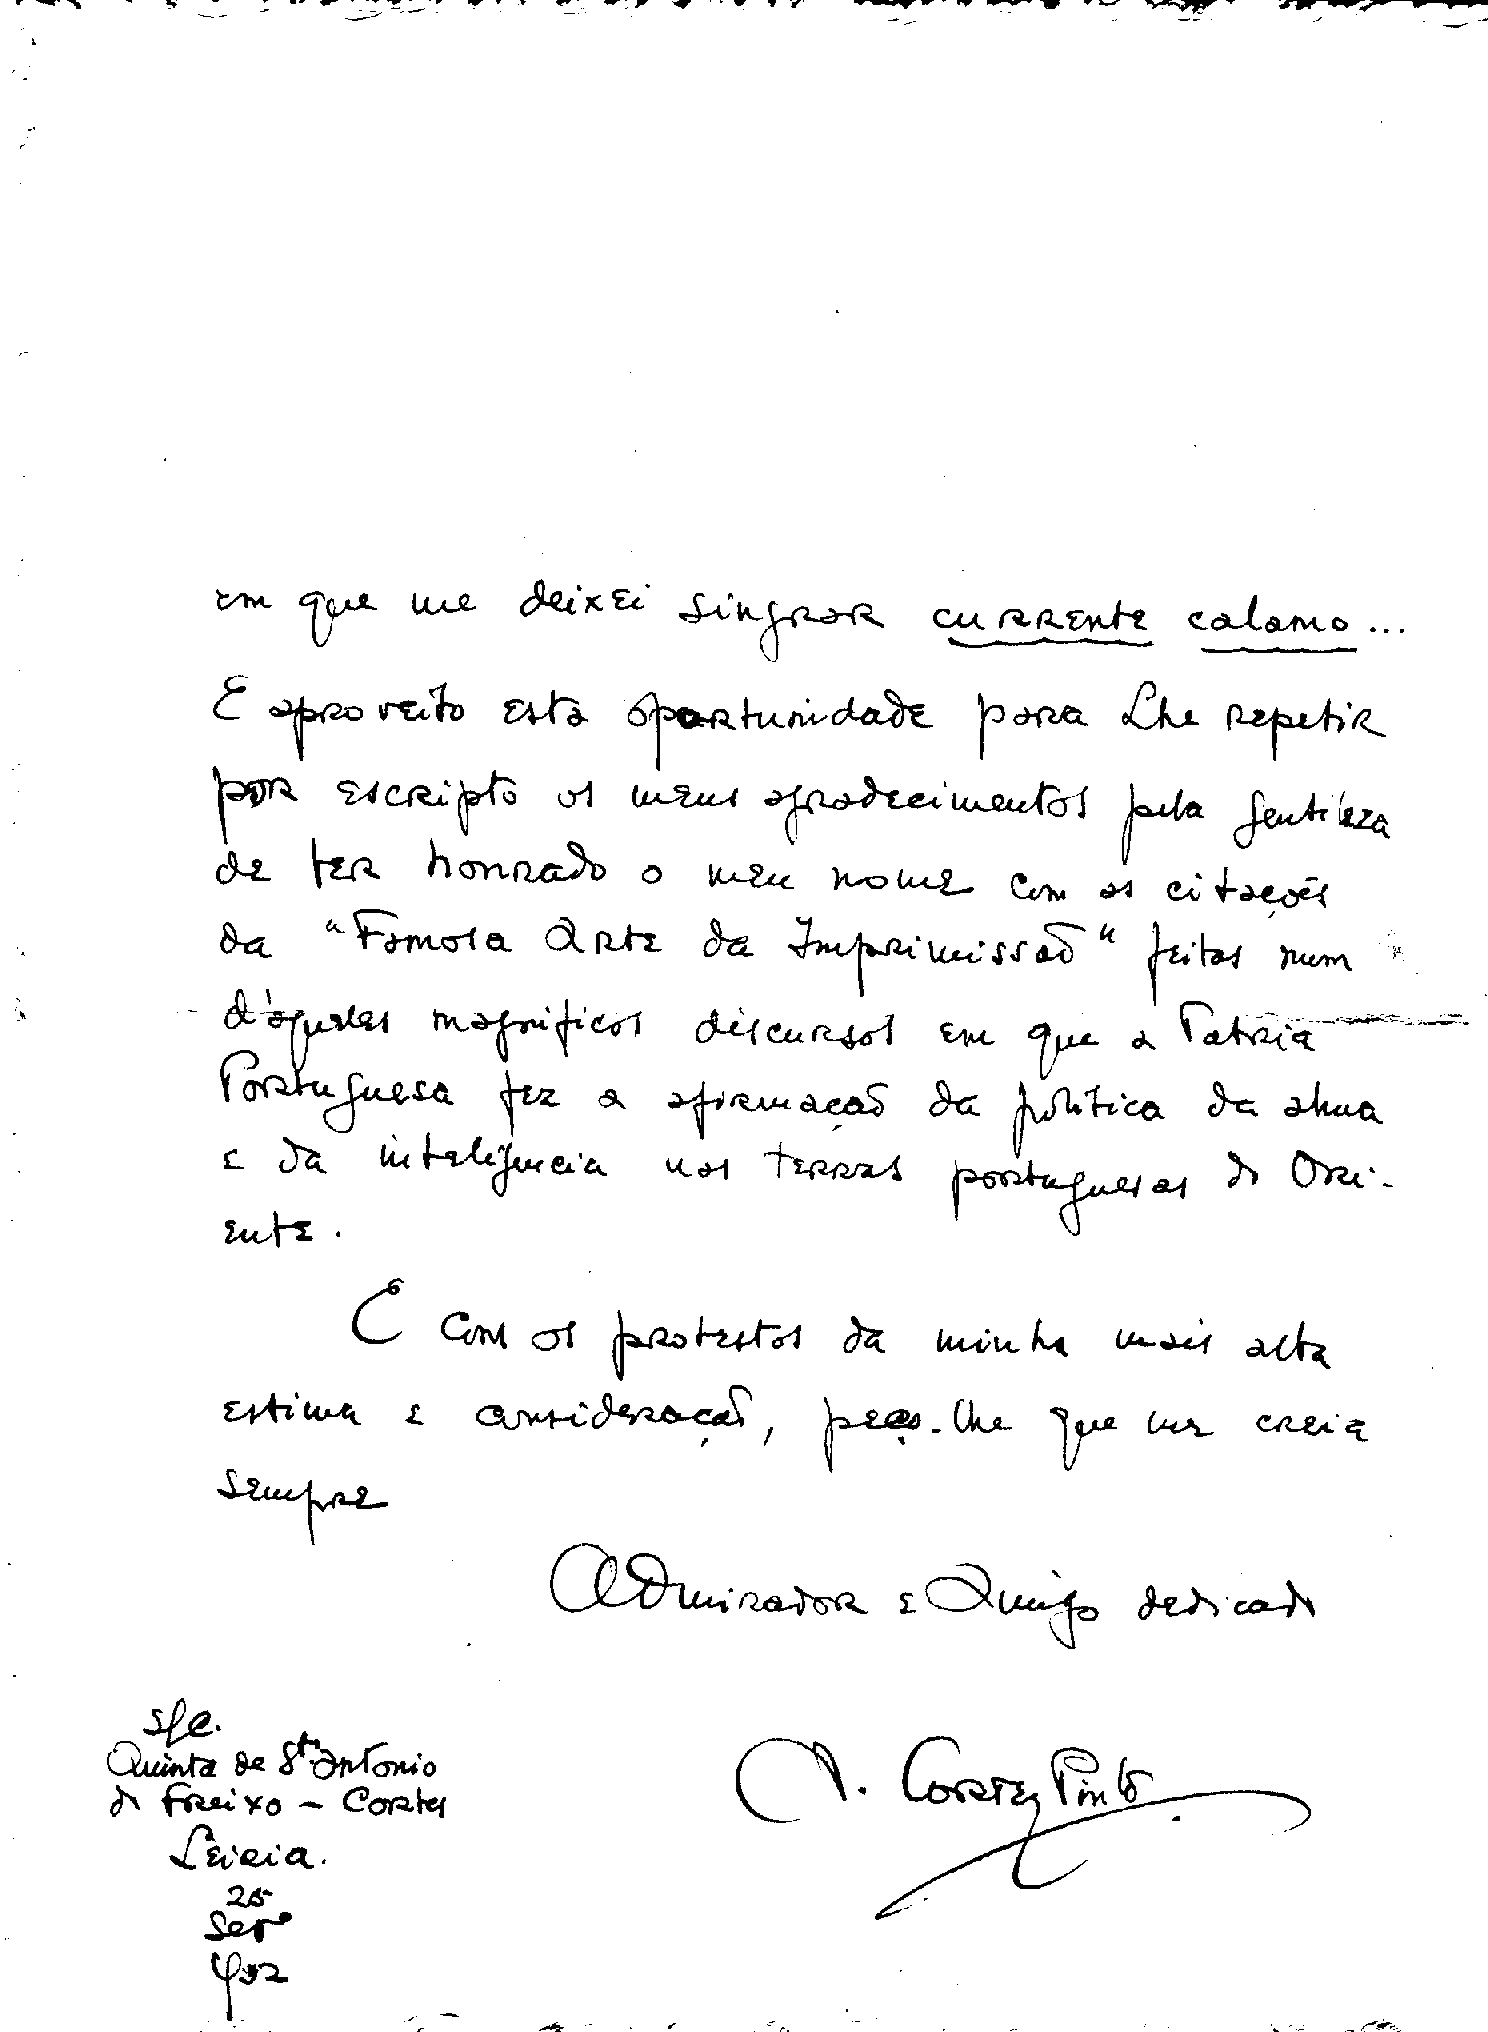 em que me deixei singrar currente calamo...
E aproveito esta oportunidade para Lhe repetir
por escripto os meus agradecimentos pela gentileza
de ter honrado o meu nome com as citações
da "Famosa Arte da Imprimissaõ" feitas num
d'aqueles magnificos discursos em que a Patria
Portuguesa fez a afirmaçaõ da politica da alma
e da inteligencia nas terras portuguesas do Ori-
ente.
E com os protestos da minha mais alta
estima e consideraçaõ, peço-lhe que me creia
sempre
Admirador e Amigo dedicado
s/c.
Quinta de Sto Antonio
do Freixo - Cortes
Leiria.
25
Seto
A. Cortez Pinto